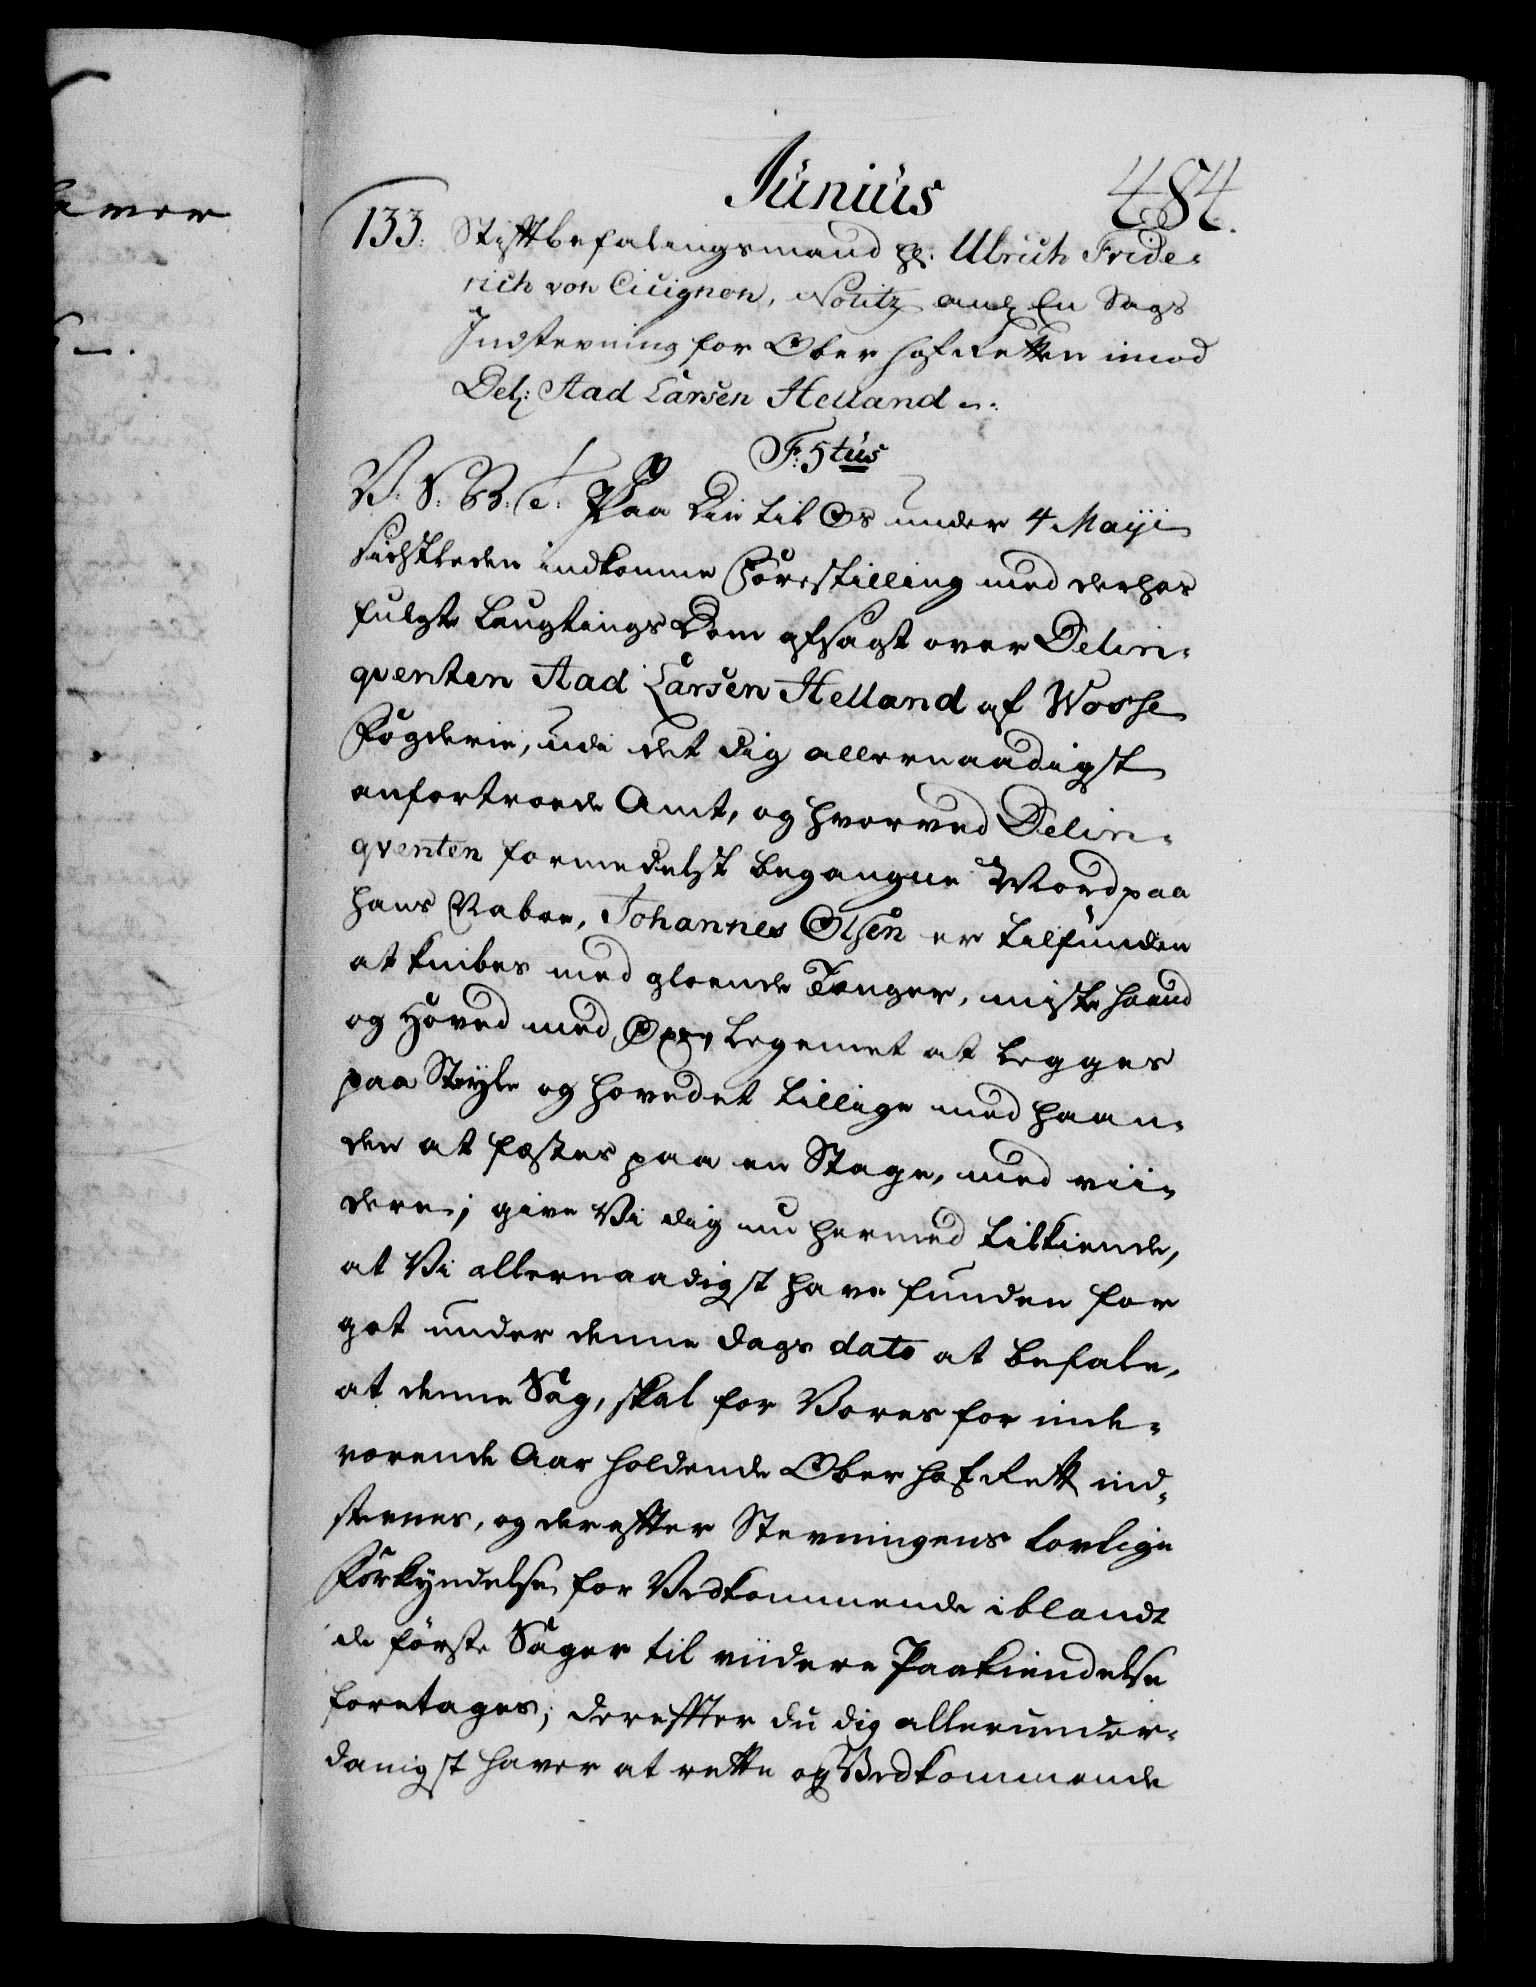 Junius
484.
133. Stiftbefalingsmand H: Ulrich Fride-
rich von Cicignon, Notitz ang: En Sags
Indstevning for Ober Hof Retten imod
Del: Aad Larsen Helland
F: 5tus
V. S. B. T. Paa Din til Os under 4 Maji
sidstleden indkomne Forestilling med derhos
fulgte Laugtings Dom afsagt over Delin-
qventen Aad Larsen Helland af Wosse
Fogderie, udi det dig allernaadigst
anfortroede Amt, og hvorved Delin-
qventen formedelst begangne Mord paa
hans Naboe, Johannes Olsen er tilfunden
at knibes med gloende Tanger, miste Haand
og Hoved med Øxe, Legemet at legges
paa Steyle og Hovedet tillige med Haan-
den at fæstes paa en Stage, med vii-
dere; give Vi dig nu hermed tilkiende,
at Vi allernaadigst have funden for
got under denne Dags dato at befale,
at denne Sag, skal for Vores for inde-
værende Aar holdende Ober Hof Rett ind-
stevnes, og derefter Stevningens lovlige
Forkyndelse for Vedkommende iblandt
de første Sager til viidere Paakiendelse
foretages; Dereffter du dig allerunder-
danigst haver at rette og Vedkommende